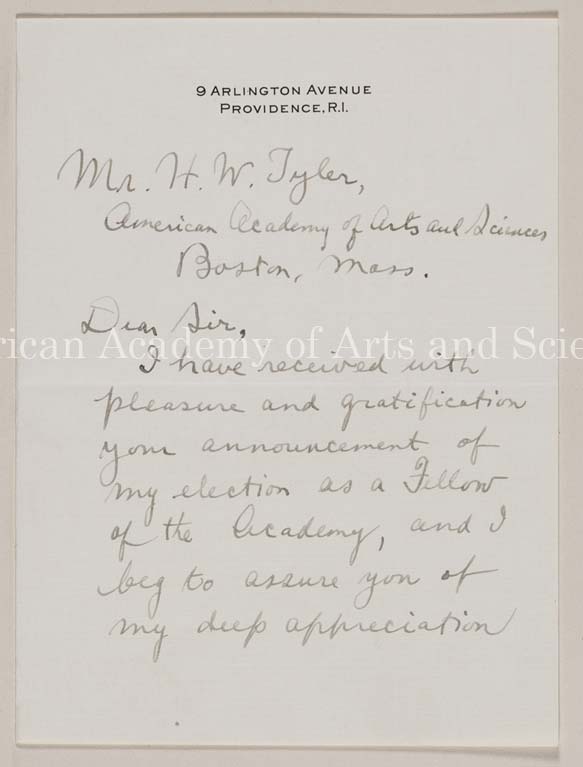 9 ARLINGTON AVENUE
PROVIDENCE, R.I.
Mr. H. W. Tyler,
American Academy of Arts and Sciences
Boston, Mass.
Dear Sir,
rican Academy of Arts and Scie
I have received with
pleasure and gratification
your announcement of
my election as a Fellow
of the Academy, and I
beg to assure you of
my deep appreciation